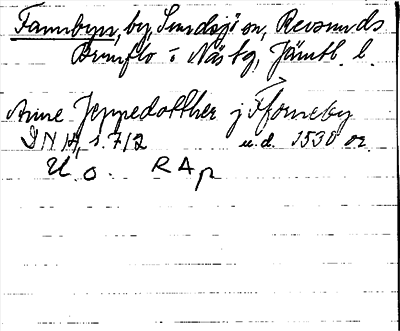 Fanbyn, by, Sundsjö sn, Revsunds
Brunflo i Näs tg, Jämtl. l.
Anne Jeppedotther j Ffonneby
DN 12, s. 712 u.d. 1530 or.
U. o. RAp